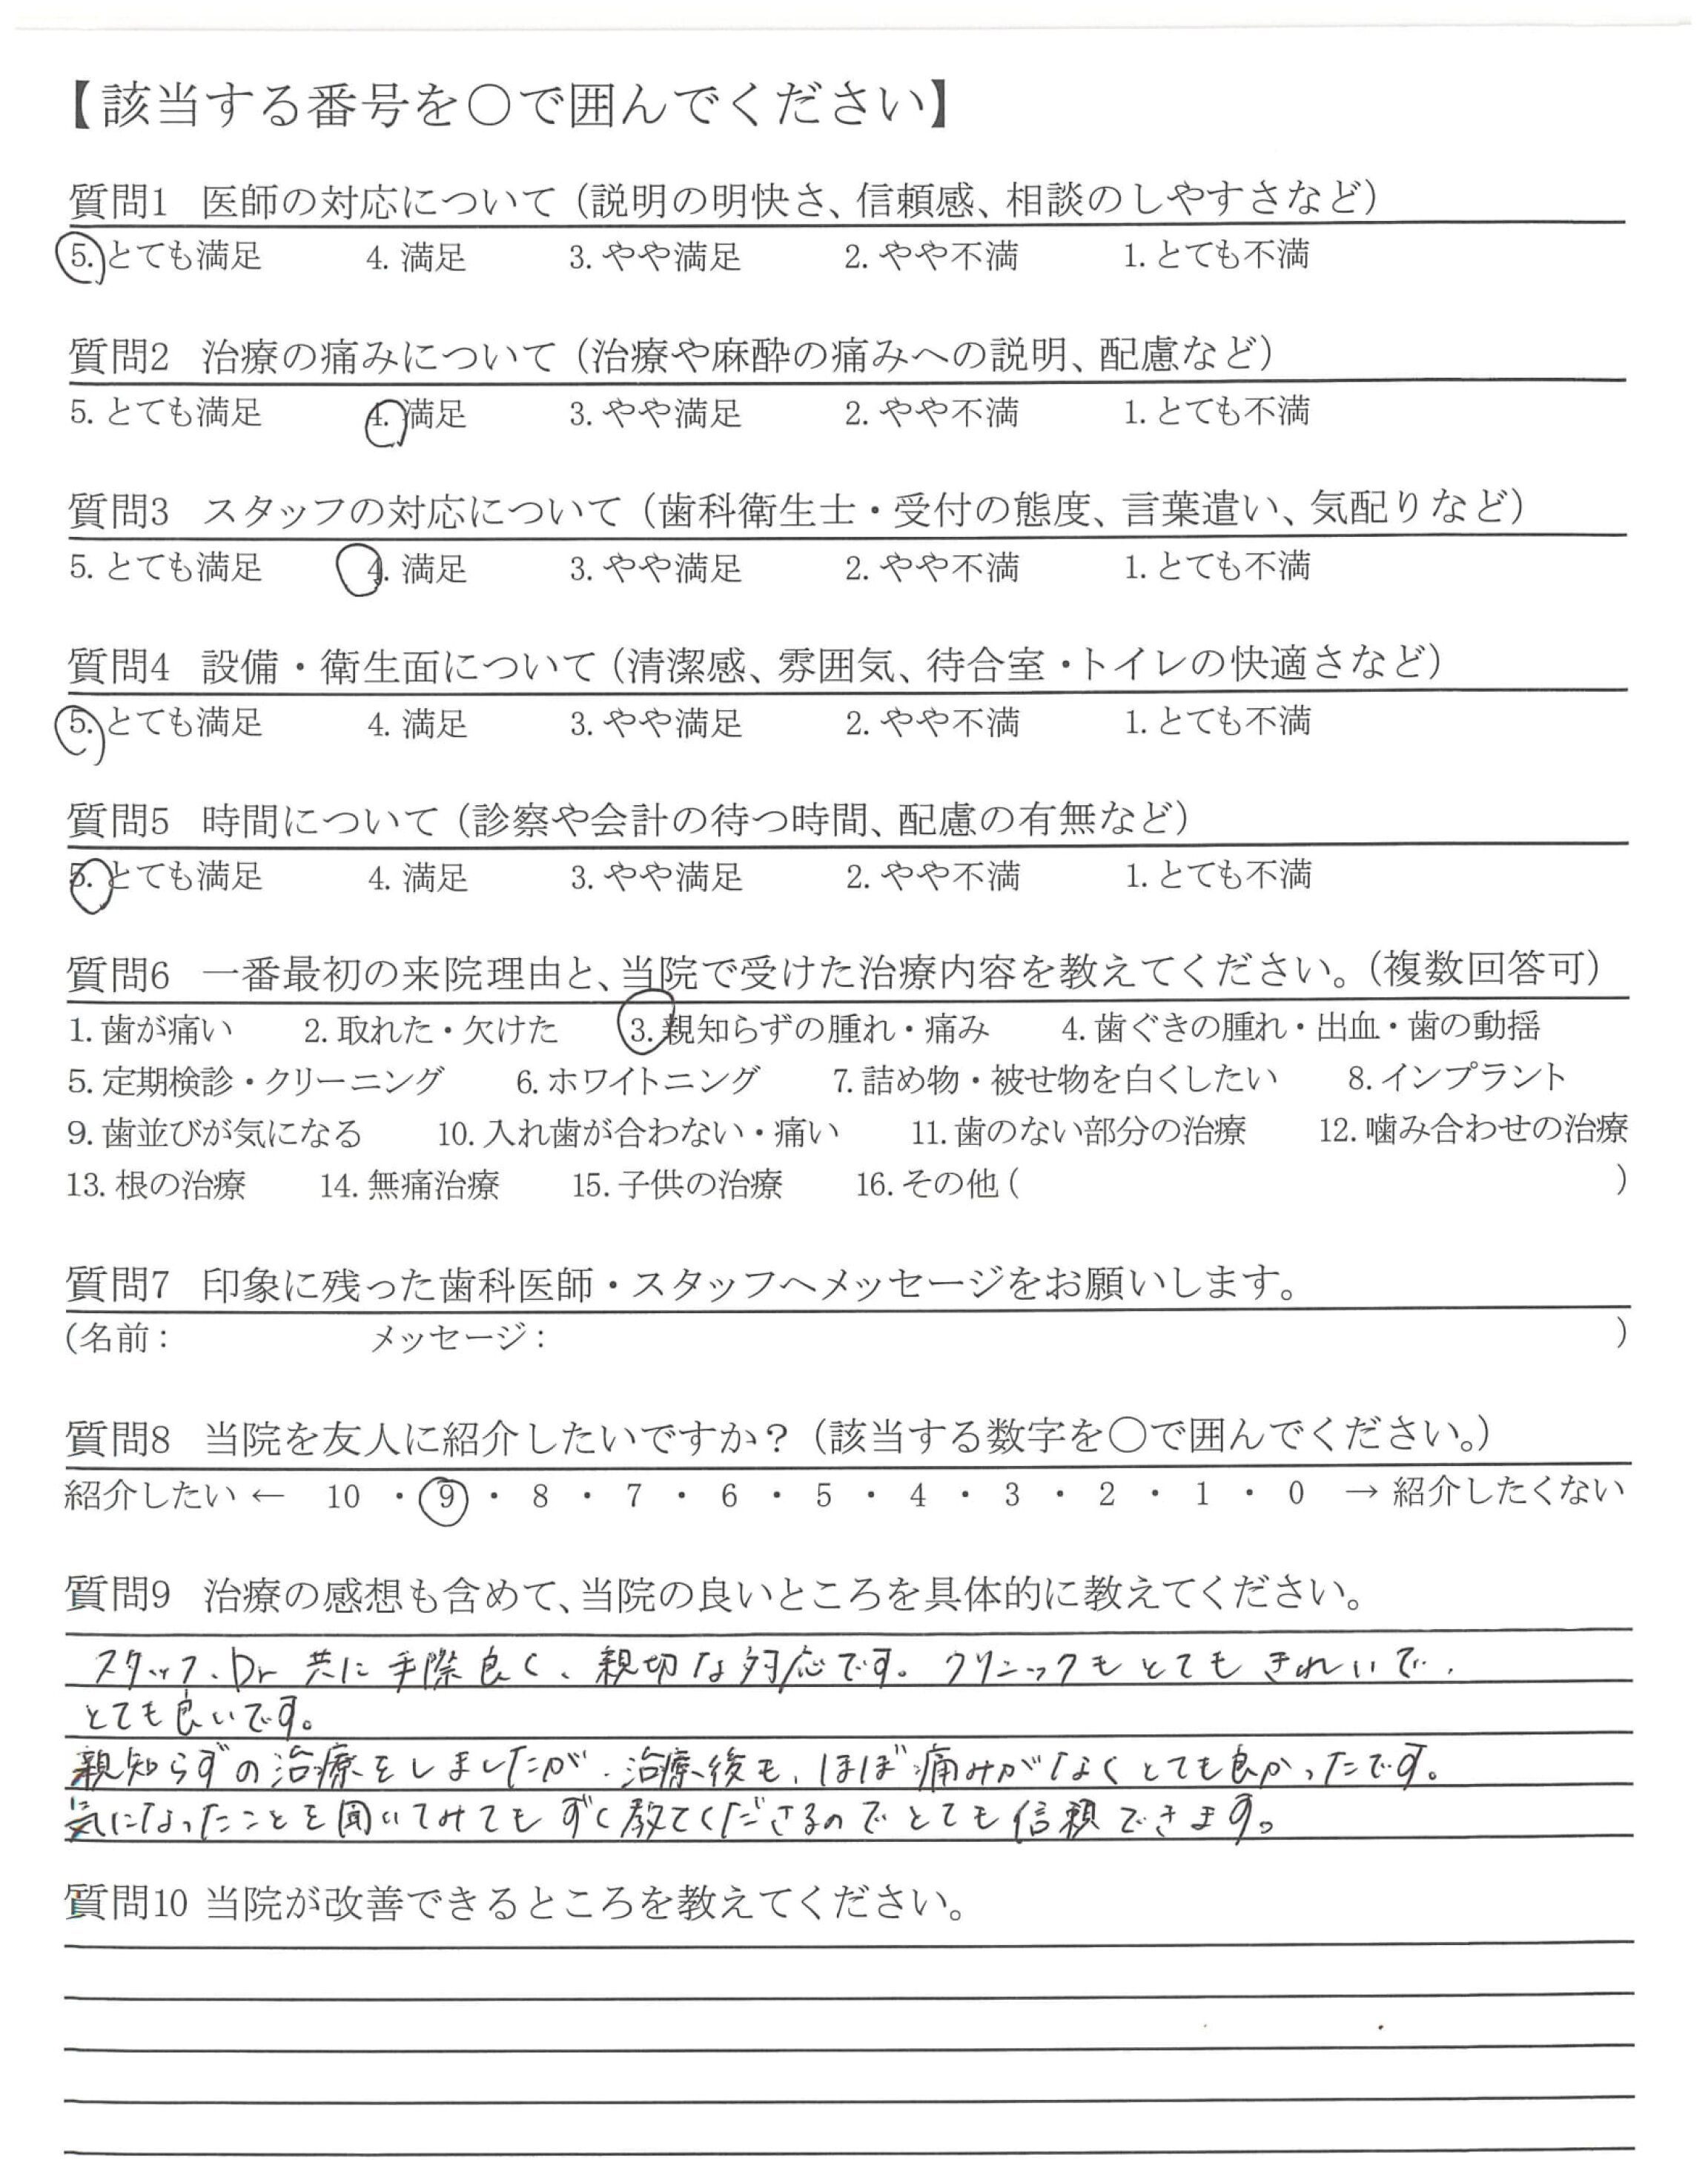 【該当する番号を○で囲んでください】
質問1 医師の対応について（説明の明快さ、信頼感、相談のしやすさなど）
5. とても満足 4. 満足 3. やや満足 2. やや不満 1. とても不満
質問2 治療の痛みについて（治療や麻酔の痛みへの説明、配慮など）
5. とても満足 4. 満足 3. やや満足 2. やや不満 1. とても不満
質問3 スタッフの対応について（歯科衛生士・受付の態度、言葉遣い、気配りなど）
5. とても満足 4. 満足 3. やや満足 2. やや不満 1. とても不満
質問4 設備・衛生面について（清潔感、雰囲気、待合室・トイレの快適さなど）
5. とても満足 4. 満足 3. やや満足 2. やや不満 1. とても不満
質問5 時間について（診察や会計の待つ時間、配慮の有無など）
5. とても満足 4. 満足 3. やや満足 2. やや不満 1. とても不満
質問6 一番最初の来院理由と、当院で受けた治療内容を教えてください。（複数回答可）
1. 歯が痛い 2. 取れた・欠けた 3. 親知らずの腫れ・痛み 4. 歯ぐきの腫れ・出血・歯の動揺
5. 定期検診・クリーニング 6. ホワイトニング 7. 詰め物・被せ物を白くしたい 8. インプラント
9. 歯並びが気になる 10. 入れ歯が合わない・痛い 11. 歯のない部分の治療 12. 噛み合わせの治療
13. 根の治療 14. 無痛治療 15. 子供の治療 16. その他（ ）
質問7 印象に残った歯科医師・スタッフへメッセージをお願いします。
（名前： メッセージ： ）
質問8 当院を友人に紹介したいですか？（該当する数字を○で囲んでください。）
紹介したい ← 10 ・ 9 ・ 8 ・ 7 ・ 6 ・ 5 ・ 4 ・ 3 ・ 2 ・ 1 ・ 0 → 紹介したくない
質問9 治療の感想も含めて、当院の良いところを具体的に教えてください。
スタッフ、Dr 共に手際良く、親切な対応です。クリニックもとてもきれいで、
とても良いです。
親知らずの治療をしましたが、治療後も、ほぼ痛みがなくとても良かったです。
気になったことを聞いてみてもすぐ教てくださるのでとても信頼できます。
質問10 当院が改善できるところを教えてください。